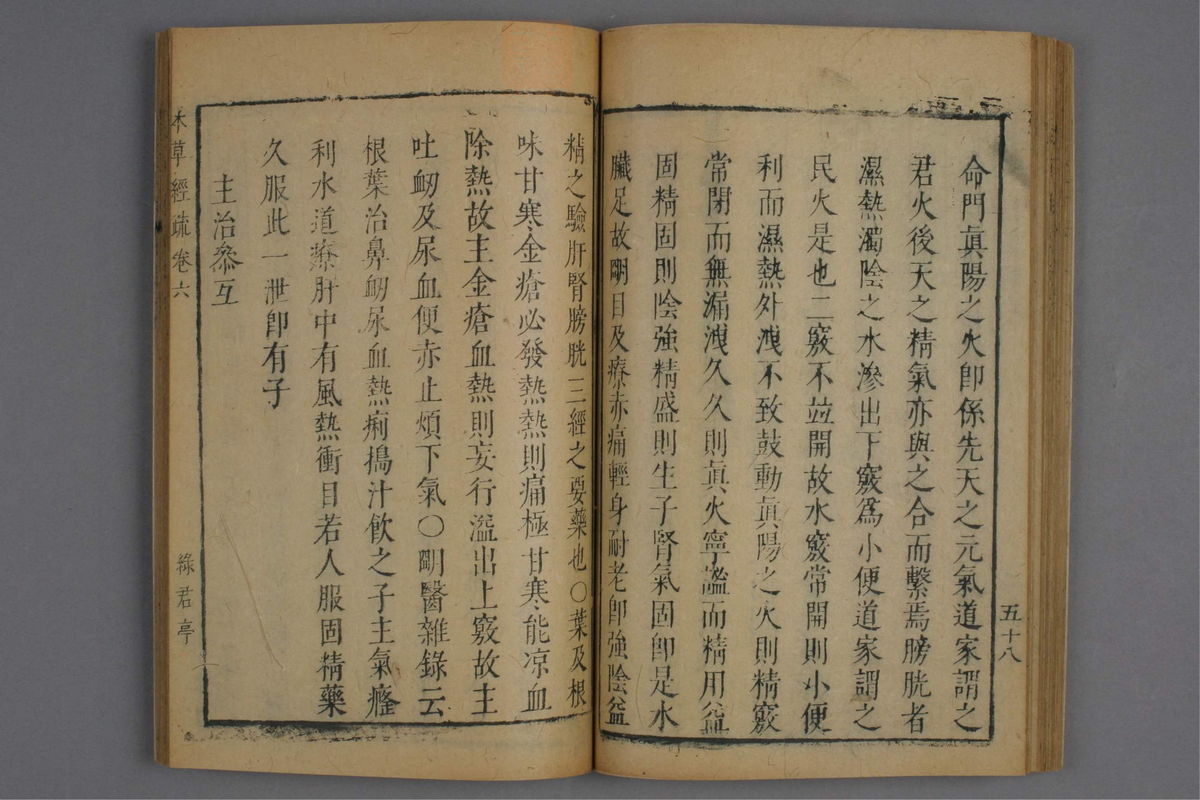 五十八
命門眞陽之火卽係先天之元氣道家謂之
君火後天之精氣亦與之合而繫焉膀胱者
濕熱濁陰之水滲出下竅爲小便道家謂之
民火是也二竅不並開故水竅常開則小便
利而濕熱外洩不致鼓動眞陽之火則精竅
常閉而無漏洩久久則眞火寧謐而精用益
固精固則陰強精盛則生子腎氣固卽是水
臟足故明目及療赤痛輕身耐老卽強陰益
精之驗肝腎膀胱三經之要藥也○葉及根
味甘寒金瘡必發熱熱則痛極甘寒能凉血
除熱故主金瘡血熱則妄行溢出上竅故主
吐衂及尿血便赤止煩下氣○明醫雜錄云
根葉治鼻衂尿血熱痢搗汁飲之子主氣癃
利水道療肝中有風熱衝目若人服固精藥
久服此一泄卽有子
主治叅互
本草經疏卷六
綠君亭